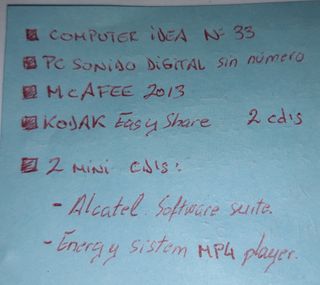 COMPUTER iDEA Nº 33
PC SONIDO DIGITAL sin número
McAFEE 2013
KODAK Easy Share 2 cd's
2 MINI CD'S:
- Alcatel Software suite.
- Energy sistem MP4 player.